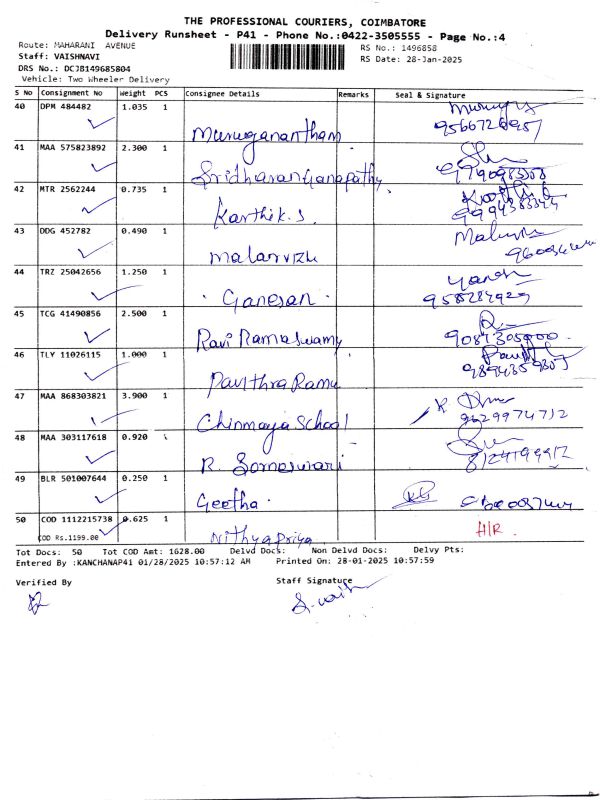 THE PROFESSIONAL COURIERS, COIMBATORE
Delivery Runsheet - P41 - Phone No.:0422-3505555 - Page No.:4
Route: MAHARANI AVENUE
RS No.: 1496858
Staff: VAISHNAVI
RS Date: 28-Jan-2025
DRS No.: DCJB149685804
Vehicle: Two Wheeler Delivery
S No Consignment No Weight PCS Consignee Details Remarks Seal & Signature
40 DPM 484482 1.035 1 Muruganantham
41 MAA 575823892 2.300 1 Sridharan Ganapathy
42 MTR 2562244 0.735 1 Karthik.S
43 DDG 452782 0.490 1 Malarvizhi
44 TRZ 25042656 1.250 1 Ganesan Ganesh 9582284929
45 TCG 41490856 2.500 1 Ravi Ramaswamy
46 TLY 11026115 1.000 1 Pavithra Ramu 9894359307
47 MAA 868303821 3.900 1 Chinmaya School 9629974712
48 MAA 303117618 0.920 1 R. Someswari
49 BLR 501007644 0.250 1 Geetha
50 COD 1112215738 0.625 1 Nithyapriya H/R
COD Rs.1199.00
Tot Docs: 50 Tot COD Amt: 1628.00 Delvd Docs: Non Delvd Docs: Delvy Pts:
Entered By :KANCHANAP41 01/28/2025 10:57:12 AM Printed On: 28-01-2025 10:57:59
Verified By Staff Signature